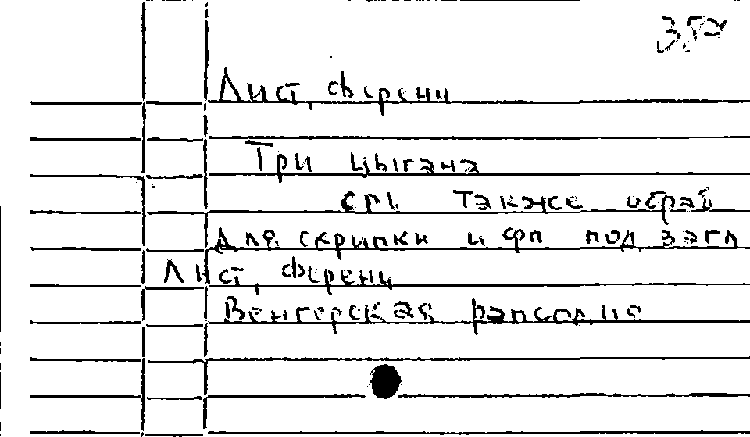 Лист, Ференц
Три цыгана
см. также обраб
для скрипки и фп под загл
Лист, Ференц
Венгерская рапсодия